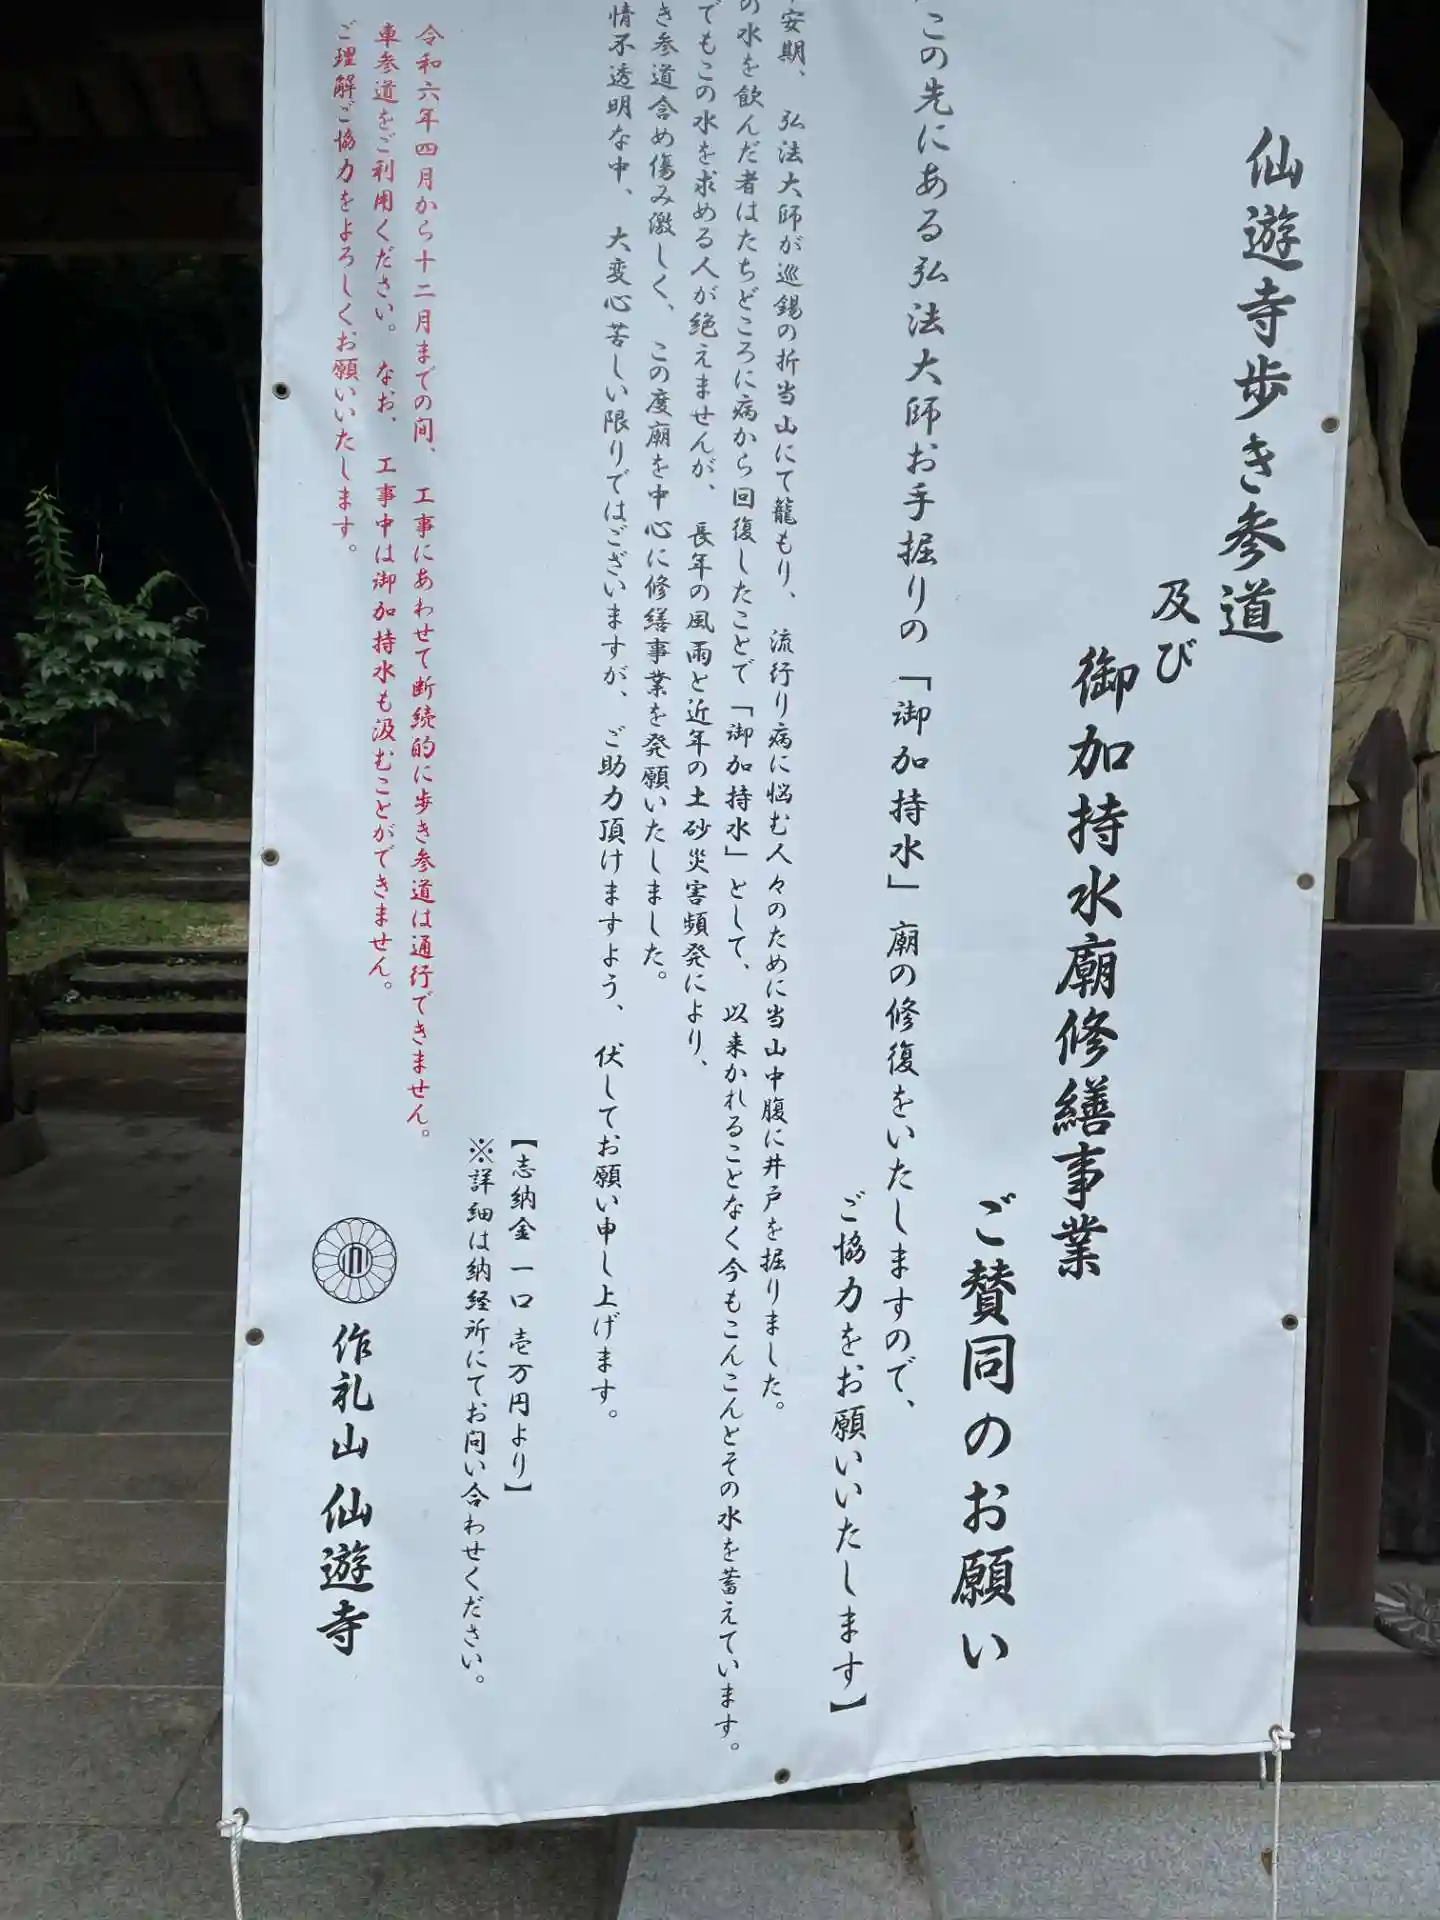 仙遊寺歩き参道
及び
御加持水廟修繕事業
ご賛同のお願い
この先にある弘法大師お手掘りの「御加持水」廟の修復をいたしますので、
ご協力をお願いいたします】
安期、弘法大師が巡錫の折当山にて籠もり、流行り病に悩む人々のために当山中腹に井戸を掘りました。
の水を飲んだ者はたちどころに病から回復したことで「御加持水」として、以来かれることなく今もこんこんとその水を蓄えています。
でもこの水を求める人が絶えませんが、長年の風雨と近年の土砂災害頻発により、
き参道含め傷み激しく、この度廟を中心に修繕事業を発願いたしました。
情不透明な中、大変心苦しい限りではございますが、ご助力頂けますよう、伏してお願い申し上げます。
【志納金一口壱万円より】
※詳細は納経所にてお問い合わせください。
令和六年四月から十二月までの間、工事にあわせて断続的に歩き参道は通行できません。
車参道をご利用ください。なお、工事中は御加持水も汲むことができません。
ご理解ご協力をよろしくお願いいたします。
作礼山 仙遊寺